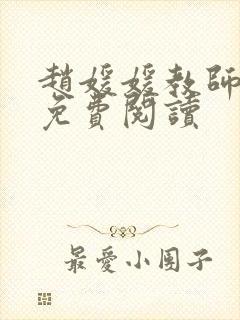 趙媛媛教師
免費閱讀
最愛小團子